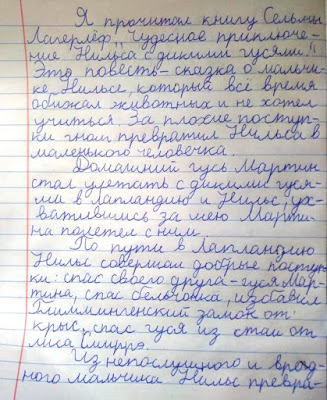 Я прочитал книгу Сельмы
Лагерлёф "Чудесное приключе-
ние Нильса с дикими гусями."
Это повесть-сказка о мальчи-
ке Нильсе, который всё время
обижал животных и не хотел
учиться. За плохие поступ-
ки гном превратил Нильса в
маленького человечка.
Домашний гусь Мартин
стал улетать с дикими гуся-
ми в Лапландию и Нильс, ух-
ватившись за шею Марти-
на полетел с ним.
По пути в Лапландию
Нильс совершал добрые поступ
ки: спас своего друга-гуся Мар-
тина, спас бельчонка, избавил
Глиммингенский замок от
крыс, спас гуся из стаи от
лиса Смиррэ.
Из непослушного и вред-
ного мальчика Нильс превра-